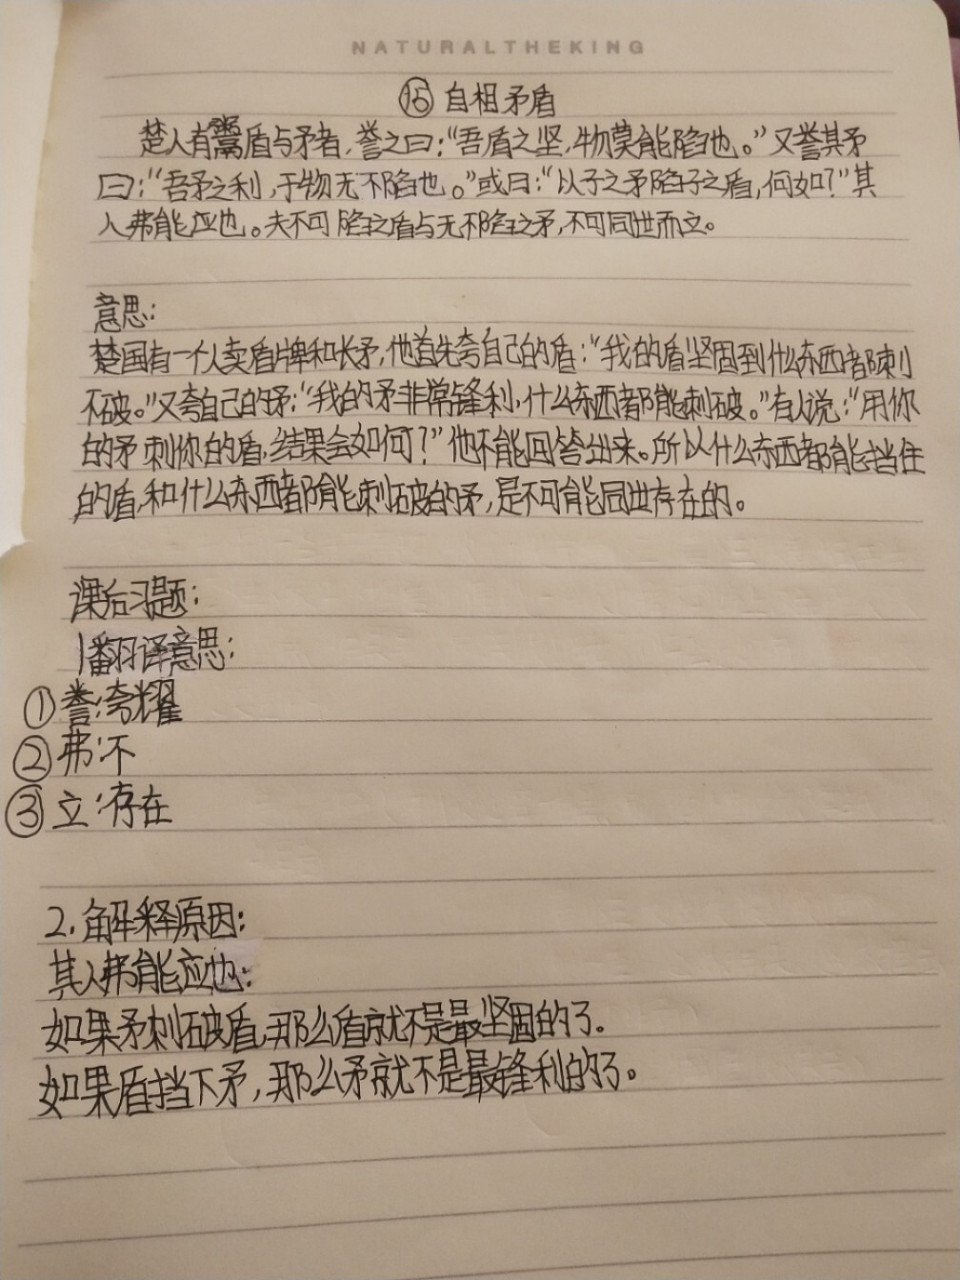 NATURALTHEKING
⑮ 自相矛盾
楚人有鬻盾与矛者,誉之曰:“吾盾之坚,物莫能陷也。”又誉其矛
曰:“吾矛之利,于物无不陷也。”或曰:“以子之矛陷子之盾,何如?”其
人弗能应也。夫不可陷之盾与无不陷之矛,不可同世而立。
意思:
楚国有一个人卖盾牌和长矛,他首先夸自己的盾:“我的盾坚固到什么东西都刺
不破。”又夸自己的矛:“我的矛非常锋利,什么东西都能刺破。”有人说:“用你
的矛刺你的盾,结果会如何?”他不能回答出来。所以什么东西都能挡住
的盾,和什么东西都能刺破的矛,是不可能同世存在的。
课后习题:
1翻译意思:
①誉:夸耀
②弗:不
③立:存在
2.解释原因:
其人弗能应也:
如果矛刺破盾,那么盾就不是最坚固的了.
如果盾挡下矛,那么矛就不是最锋利的了。